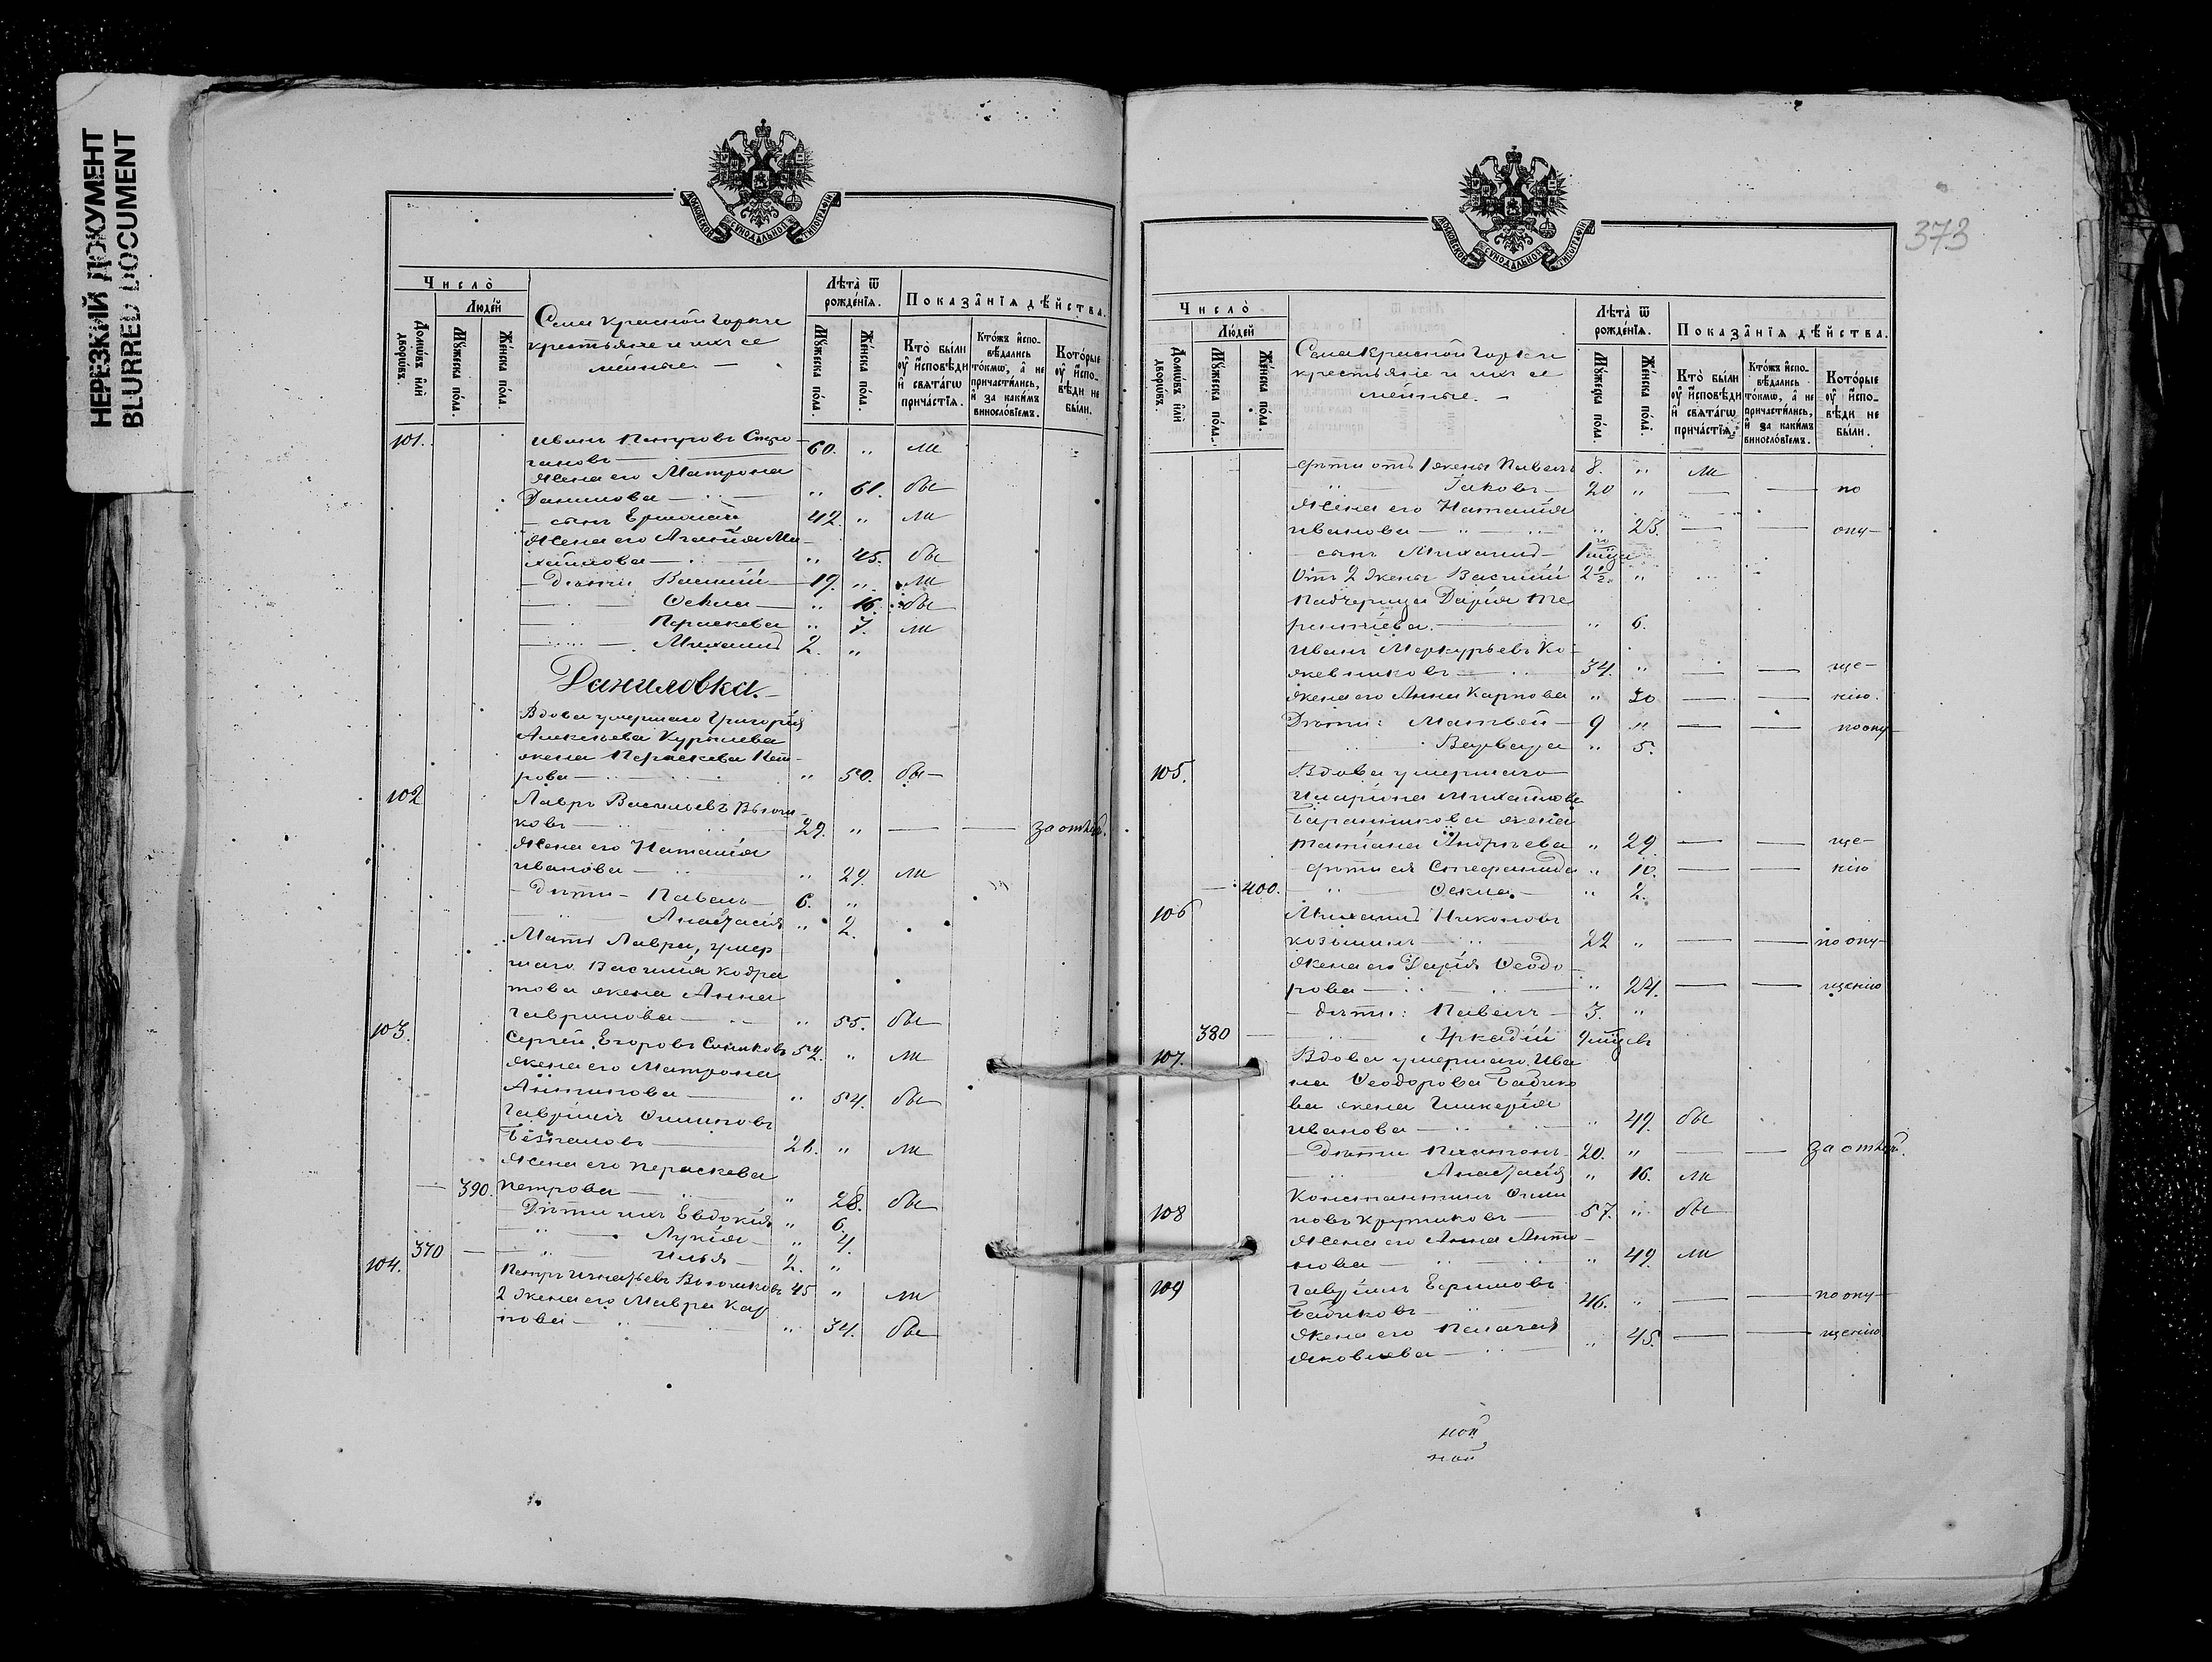 НЕРЕЗКИЙ ДОКУМЕНТ
BLURRED DOCUMENT
МОСКОВСКОЙ СѴНОДАЛЬНОЙ ТИПОГРАФІИ
Число̀
Людей
Домѡвъ и҆лѝ дворѡвъ.
Мꙋжеска пола.
Женска пола.
Села Красной Горки
крестьяне и ихъ се
мейные. —
Лѣта̀ ѿ рожденїѧ.
Мꙋжеска пола.
Женска пола.
Показанїѧ дѣйства.
Кто̀ были ᲂу҆ и҆сповѣди и҆ свѧтагѡ причастїѧ.
Кто́жъ и҆сповѣдались то́кмѡ, а҆ не причастились, и҆ за какимъ винословїемъ.
Которые ᲂу҆ и҆сповѣди не были.
101. Иванъ Петровъ Стро-
гановъ — 60. „ ли
Жена его Матрона
Данилова — „ 61. бы
— сынъ Ермолай 42. „ ли
Жена его Агафія Ми-
хайлова — „ 45. бы
— Дѣти Василій — 19. „ ли
Ѳекла — „ 16. бы
Параскева „ 7. ли
Михаилъ 2. „
Даниловка. —
Вдова умершаго Григорія
Алексѣева
жена Параскева Пет-
рова — „ 50. бы —
102 Лавръ Васильевъ
ковъ — 29. „ — — за отлуч.
Жена его Наталія
Иванова — „ 29. ли
— Дѣти — Павелъ — 6. „
Анастасія „ 2.
Мать Лавра, умер
шаго Василія Кодра
това жена Анна
Гаврилова — „ 55. бы
103. Сергѣй Егоровъ 52. „ ли
Жена его Матрона
Антипова — „ 54. бы
Гавріилъ Филиповъ
— 26. „ ли
Жена его Параскева
— 390. Петрова — „ 28. бы
— Дѣти ихъ Евдокія „ 6.
„ Лукія — „ 4.
370 — „ Илья — 2. „
104. Петръ Игнатьевъ 45 „ ли
2 Жена его Мавра Кар
пова — „ 34. бы
373
МОСКОВСКОЙ СѴНОДАЛЬНОЙ ТИПОГРАФІИ
Число̀
Людей
Домѡвъ и҆лѝ дворѡвъ.
Мꙋжеска пола.
Женска пола.
Села Красной Горки
крестьяне и ихъ се
мейные. —
Лѣта̀ ѿ рожденїѧ.
Мꙋжеска пола.
Женска пола.
Показанїѧ дѣйства.
Кто̀ были ᲂу҆ и҆сповѣди и҆ свѧтагѡ причастїѧ.
Кто́жъ и҆сповѣдались то́кмѡ, а҆ не причастились, и҆ за какимъ винословїемъ.
Которые ᲂу҆ и҆сповѣди не были.
— Дѣти отъ 1 жены Павелъ 8. „ ли
„ Іаковъ — 20 „ — — по
Жена его Наталія
Иванова — „ 25. — — опу —
— сынъ Михаилъ —
Отъ 2 жены Василій 2½ „
Падчерица Дарія Те
рентіева. — „ 6.
Иванъ Меркурьевъ Ко-
жевниковъ — 34. „ — — ще —
Жена его Анна Карпова „ 30 — — нію.
Дѣти: Матвей — 9 „ — — по опу —
Варвара „ 5.
105. Вдова умершаго
Иларіона Михайлова
Баранникова жена
Татіана Андреева „ 29. — — ще —
дѣти ея Стефанида „ 10. — — нію
— 400. „ Ѳекла. — „ 2.
106 Михаилъ Никоновъ
Козьминъ — 22 „ — — по опу —
Жена его Дарія Ѳеодо —
рова — „ 24. — — щенію
— дѣти: Павелъ — 3. „
380 — Аркадій 9 мѣсц.
107. Вдова умершаго Ива
на Ѳеодорова Бабико
ва жена Гликерія
Иванова — „ 49. бы
— Дѣти Платонъ 20. „ — — за отлуч.
Анастасія „ 16. ли
108 Константинъ Фили
повъ Кругликовъ — 57. „ бы
Жена его Анна Анто —
нова — „ 49. ли
109 Гавріилъ Ефимовъ
Бабиковъ — 46. „ — — по опу —
Жена его Пелагея
Яковлева — „ 45. — — щенію